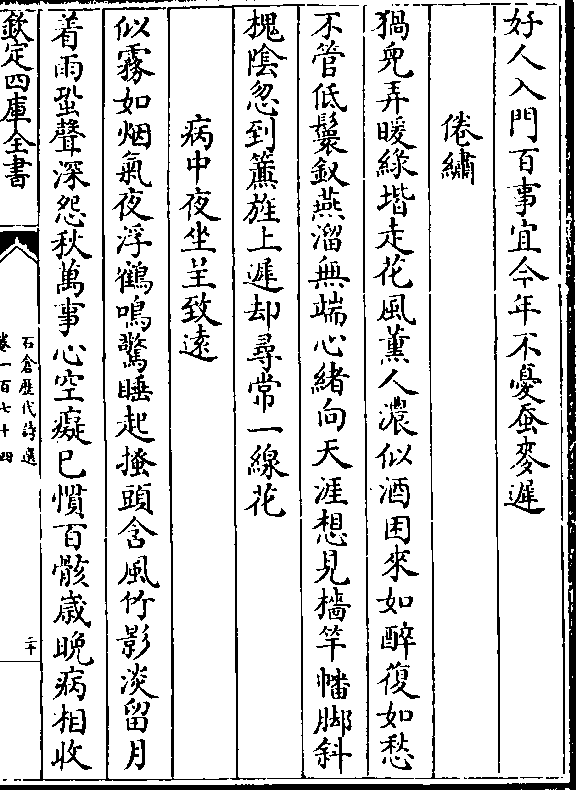 好人入門百事宜今年不憂蚕麥遲
倦繡
猧兒弄暖緑堦走花風薰人濃似酒困來如醉復如愁
不管低鬟釵燕溜無端心緒向天涯想見檣竿幡脚斜
槐陰忽到簾旌上遲却尋常一線花
病中夜坐呈致遠
似霧如烟氣夜浮鶴鳴驚睡起搔頭含風竹影淡留月
着雨蛩聲深怨秋萬事心空癡已慣百骸歳晚病相收
欽定四庫全書
石倉歴代詩選
卷一百七十四
二十